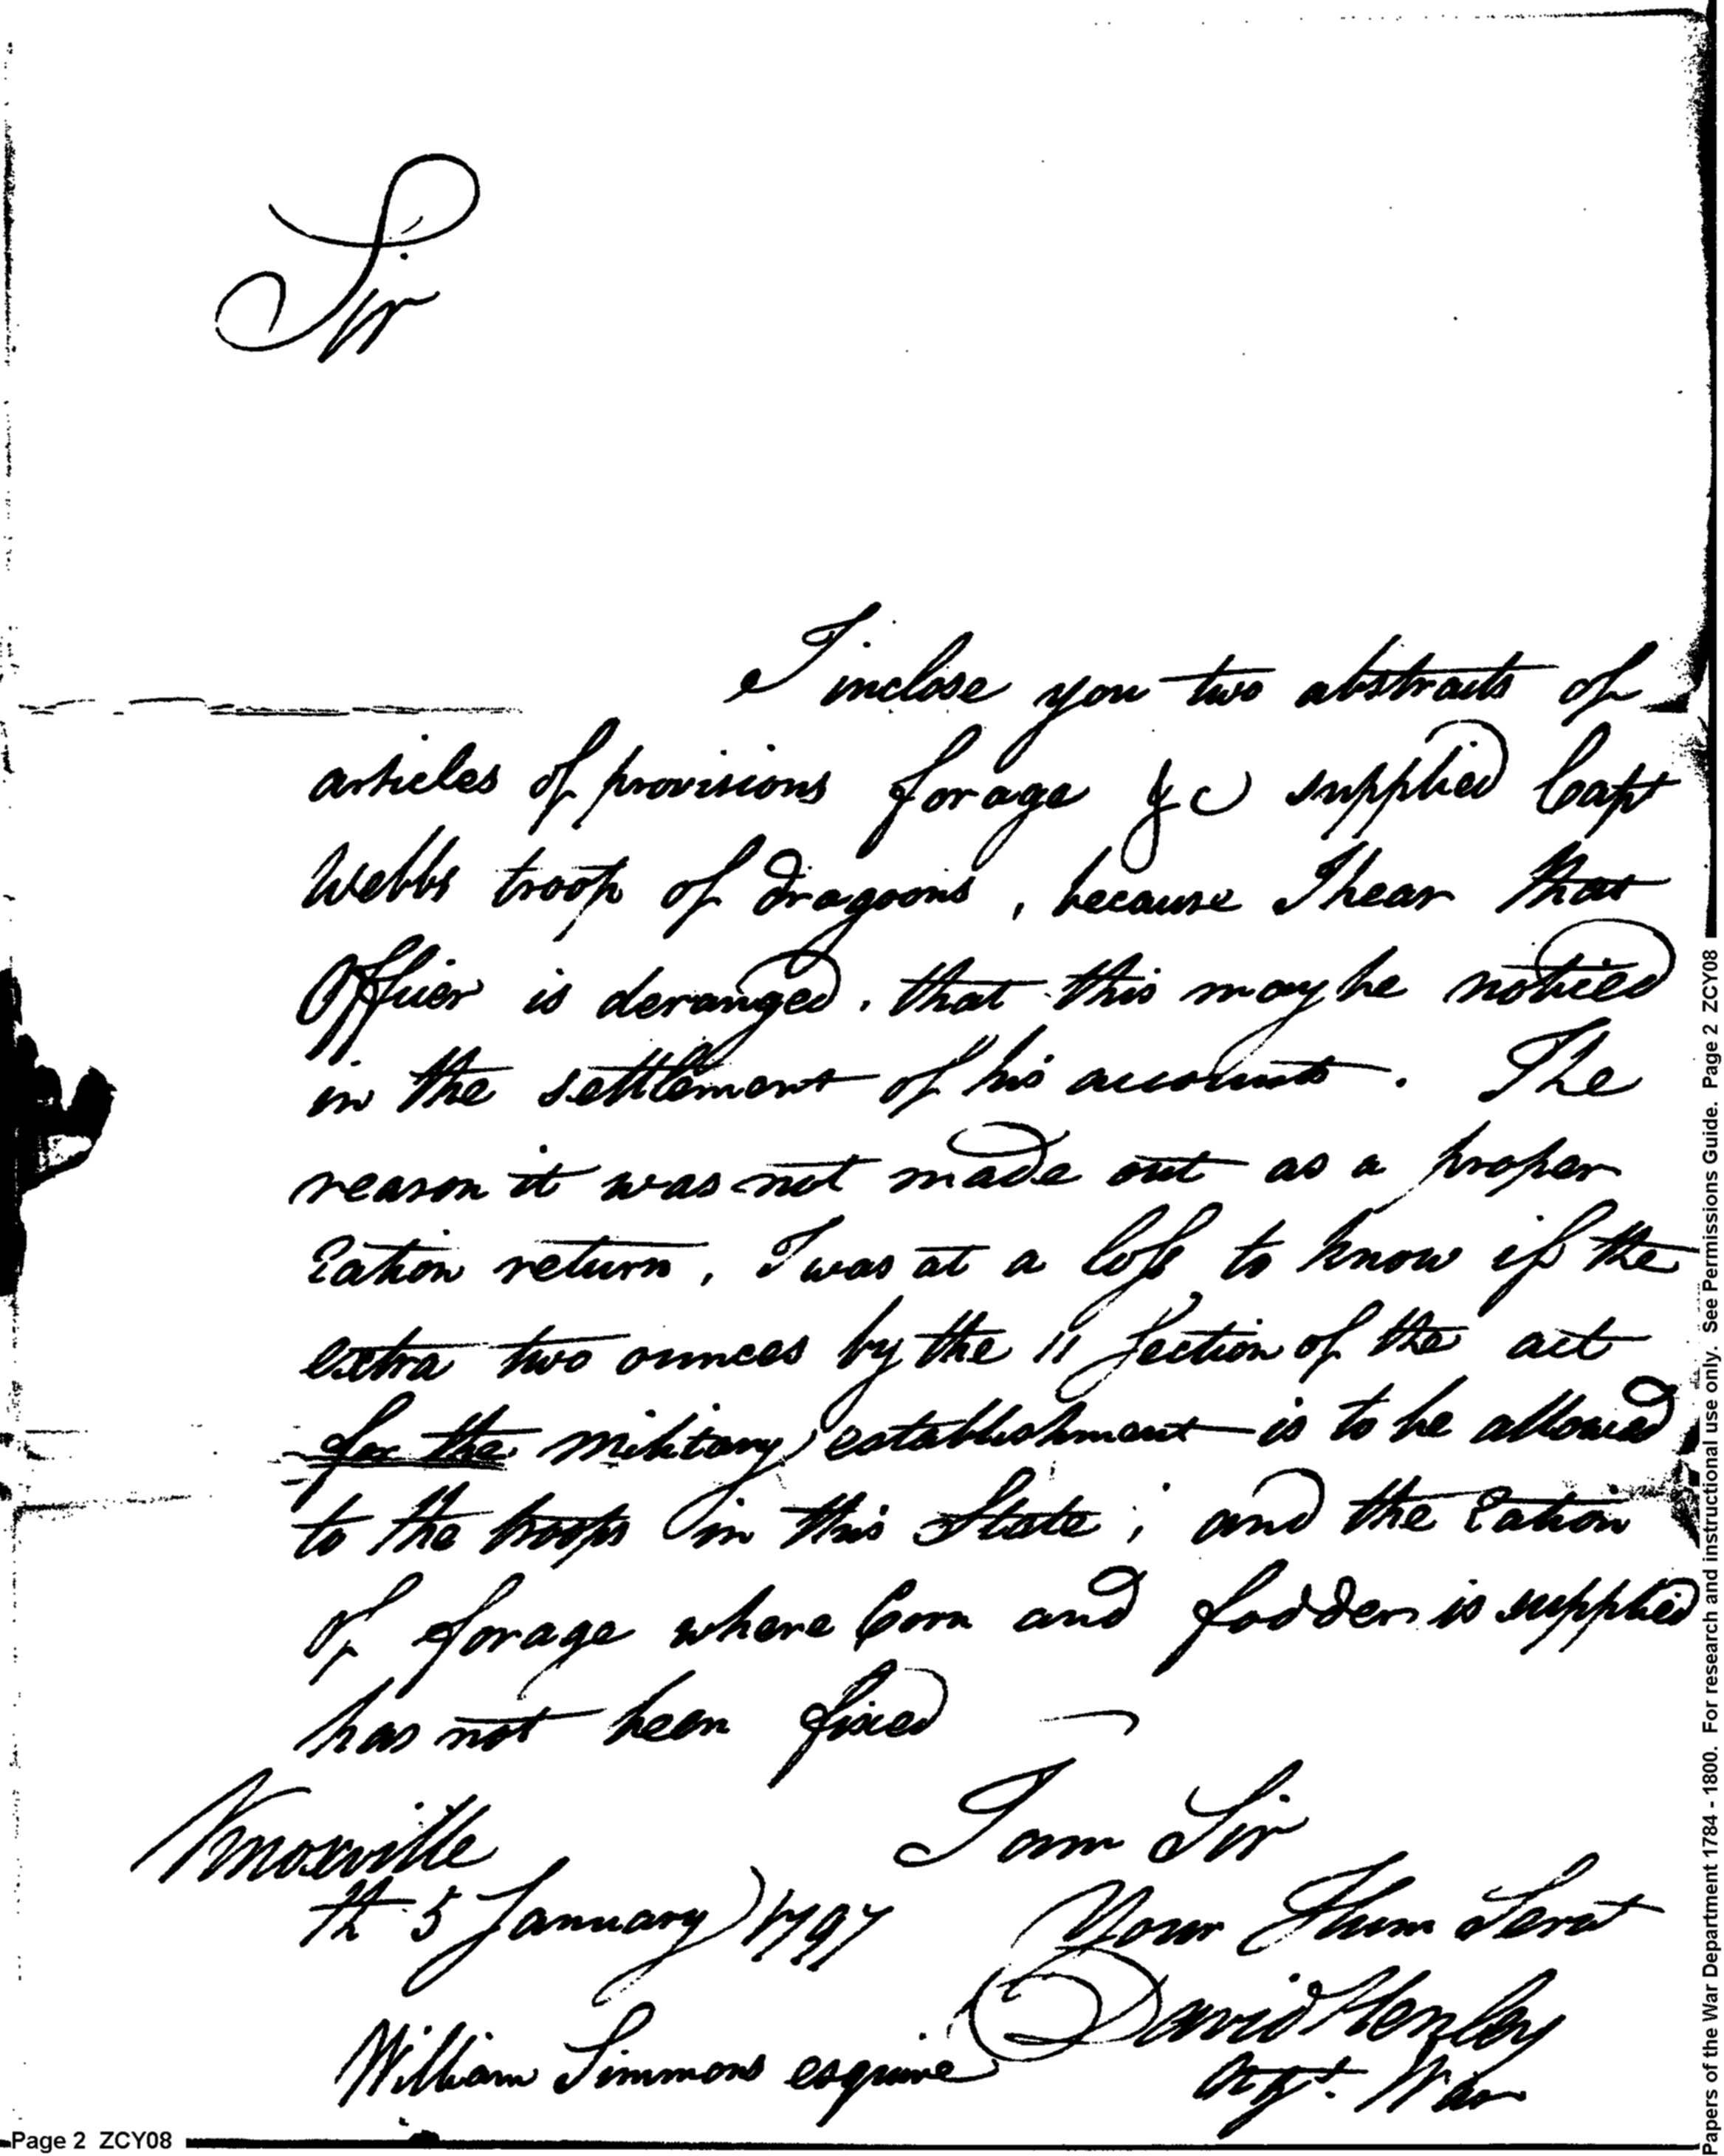 Sir
I inclose you two abstracts of
articles of provisions forage &c supplied Capt
Webbs troop of dragoons, because I hear that
Officer is deranged. that this may be noticed
in the settlement of his accounts. The
reason it was not made out as a proper
Ration return, I was at a loss to know if the
extra two ounces by the 11 Section of the act
for the military establishment is to be allowed
to the troops in this State; and the Ration
of forage where Corn and fodder is supplied
has not been fixed
I am Sir
Knoxville
th 5 January 1797
Your Hum Servt
David Henley
Agt. War
William Simmons esquire
Page 2 ZCY08
Papers of the War Department 1784 - 1800. For research and instructional use only. See Permissions Guide. Page 2 ZCY08